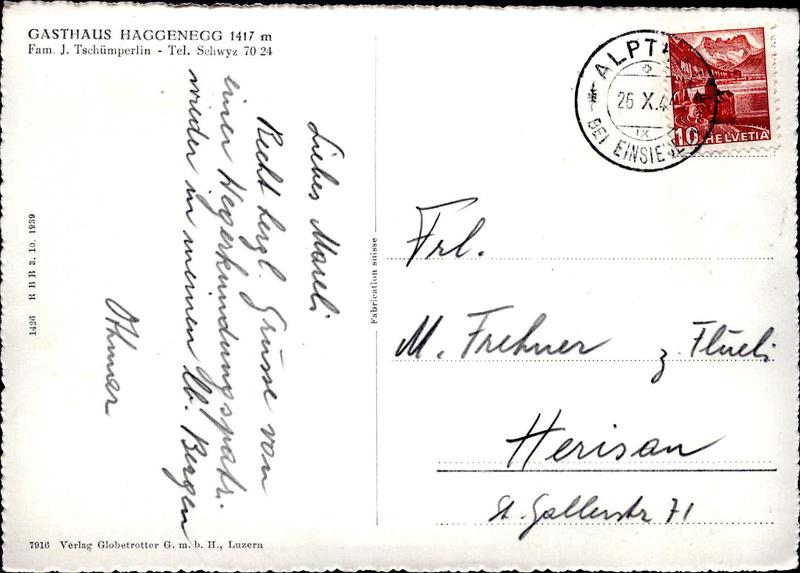 GASTHAUS HAGGENEGG 1417 m
Fam. J. Tschümperlin - Tel. Schwyz 70 24
Liebes Mareli
Recht herzl. Grüsse von
einer Hegerkundungspatr.
wieder in meinen lb. Bergen
Othmar
1426 RBB 3. 10. 1939
7916 Verlag Globetrotter G. m. b. H., Luzern
Fabrication suisse
ALPTAL
26 X.4
IX
BEI EINSIEDELN
10 HELVETIA
Frl.
M. Frehner z. Flüeli
Herisau
St. Gallerstr 71